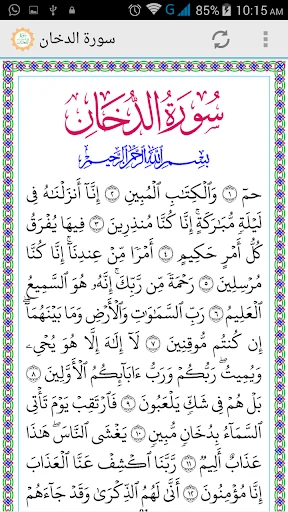 85% 10:15 AM
سورة الدخان
سُورَةُ الدُّخَان
بِسْمِ اللَّهِ الرَّحْمَٰنِ الرَّحِيمِ
حمٓ ۝١ وَٱلْكِتَٰبِ ٱلْمُبِينِ ۝٢ إِنَّآ أَنزَلْنَٰهُ فِى
لَيْلَةٍ مُّبَٰرَكَةٍ ۚ إِنَّا كُنَّا مُنذِرِينَ ۝٣ فِيهَا يُفْرَقُ
كُلُّ أَمْرٍ حَكِيمٍ ۝٤ أَمْرًا مِّنْ عِندِنَآ ۚ إِنَّا كُنَّا
مُرْسِلِينَ ۝٥ رَحْمَةً مِّن رَّبِّكَ ۚ إِنَّهُۥ هُوَ ٱلسَّمِيعُ
ٱلْعَلِيمُ ۝٦ رَبِّ ٱلسَّمَٰوَٰتِ وَٱلْأَرْضِ وَمَا بَيْنَهُمَآ ۖ
إِن كُنتُم مُّوقِنِينَ ۝٧ لَآ إِلَٰهَ إِلَّا هُوَ يُحْىِۦ
وَيُمِيتُ ۖ رَبُّكُمْ وَرَبُّ ءَابَآئِكُمُ ٱلْأَوَّلِينَ ۝٨
بَلْ هُمْ فِى شَكٍّ يَلْعَبُونَ ۝٩ فَٱرْتَقِبْ يَوْمَ تَأْتِى
ٱلسَّمَآءُ بِدُخَانٍ مُّبِينٍ ۝١٠ يَغْشَى ٱلنَّاسَ ۖ هَٰذَا
عَذَابٌ أَلِيمٌ ۝١١ رَّبَّنَا ٱكْشِفْ عَنَّا ٱلْعَذَابَ
إِنَّا مُؤْمِنُونَ ۝١٢ أَنَّىٰ لَهُمُ ٱلذِّكْرَىٰ وَقَدْ جَآءَهُمْ